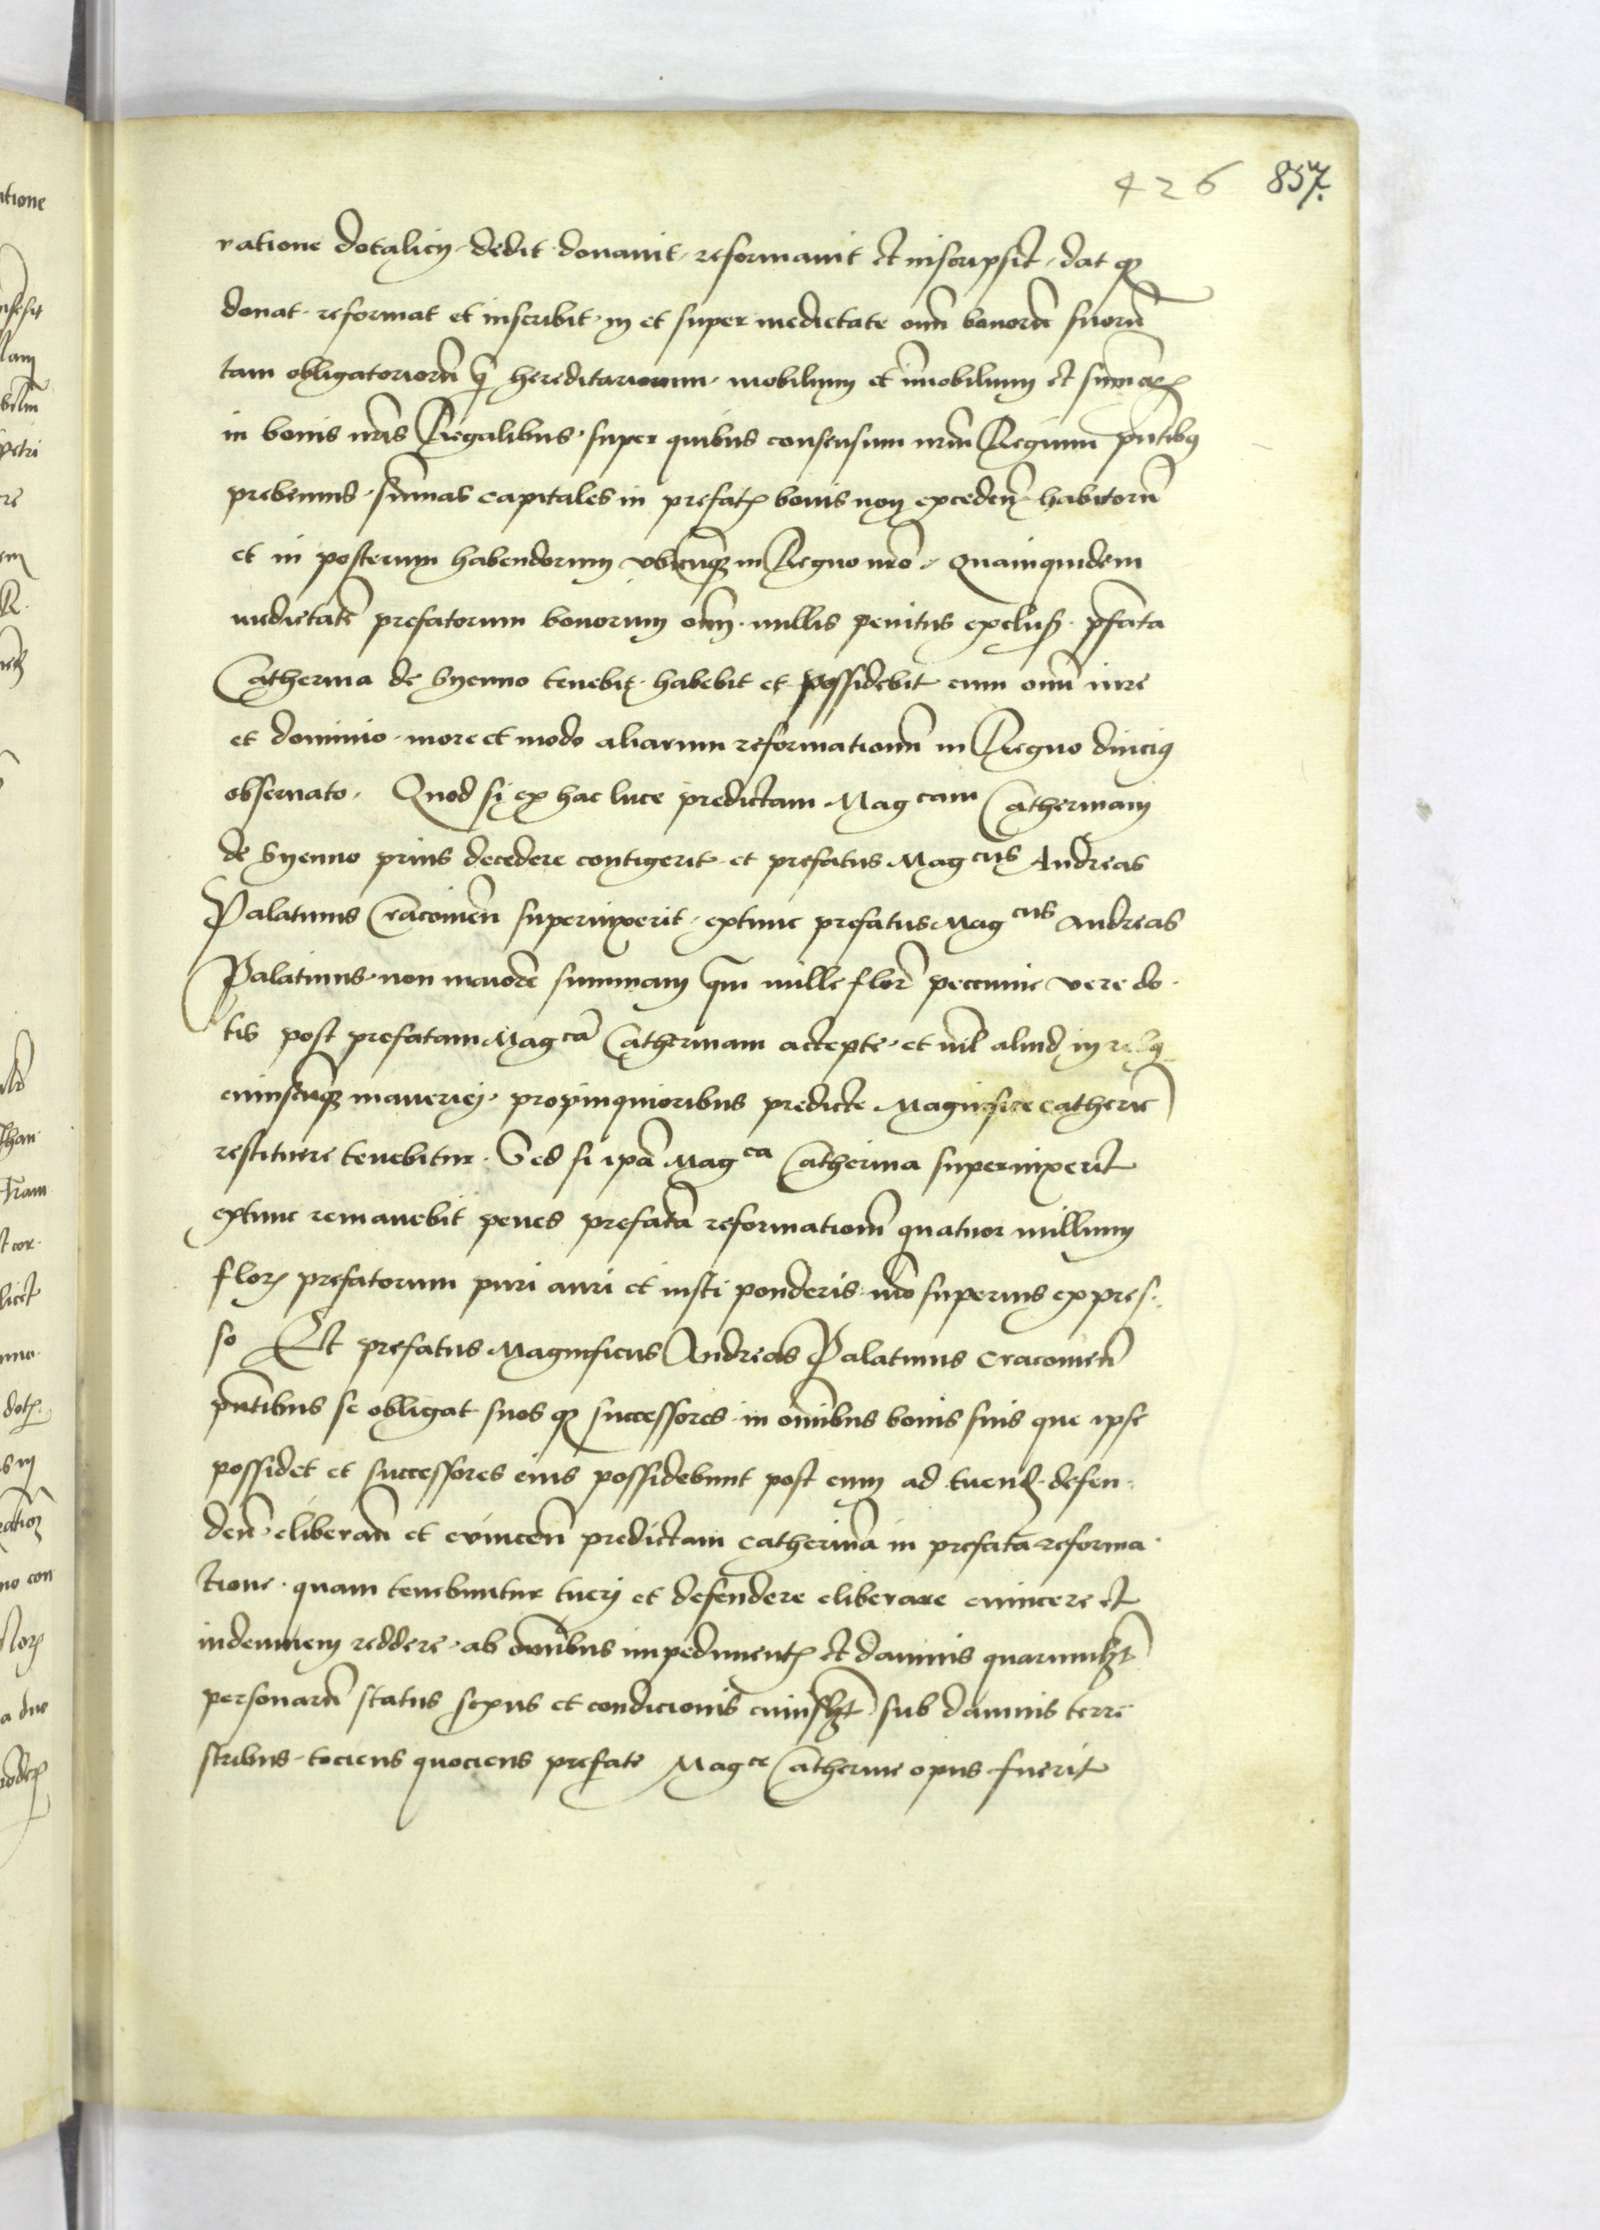 426 857.
ratione dotalicij · dedit · donauit · reformauit et inscripsit · dat q3
donat · reformat et inscribit · in et super medietate oīm bonorū suorū
tam obligatoriorū q̄ hereditariorum · mobilium et īmobilium et sūmaꝝ
in bonis nr̄is Regalibus · super quibus consensum nrm̄ Regium pn̄tibꝰ
prebemus · sūmas capitales in prefatꝭ bonis non exceden̄ · habitorū
et in posterum habendorum vbicūq3 in Regno nr̄o · Quamquidem
medietatē prefatorum bonorum oīm · nullis penitus exclusꝭ · p̄fata
Catherina de Syenno tenebit · habebit et possidebit cum omī iure
et dominio · more et modo aliarum reformationū in Regno diuciꝰ
obseruato · Quod si ex hac luce predictam Mag cam Catherinam
de Syenno prius decedere contigerit · et prefatus Mag cus Andreas
Palatinus Cracouien̄ superuixerit · extunc prefatus Mag cus Andreas
Palatinus · non maiorē summam q̄m mille flor̄ peccunie vere do ·
tis post prefatam Mag cā Catherinam accepte · et nil aliud in
cuiuscūq3 maneriei · propinquioribus predicte Magnifice Catherīe
restituere tenebitur · Sed si ipā Mag ca Catherina superuixerit
extunc remanebit penes prefatā reformationē quatuor millium
florꝭ prefatorum puri auri et iusti ponderis · mō superius expres ·
so Et prefatus Magnificus Andreas Palatinus Cracouien̄
pn̄tibus se obligat suos q3 successores · in oīnibus bonis suis que ipse
possidet et successores eius possidebunt post eum ad tuend · defen ·
den̄ · eliberan̄ et euincen̄ predictam Catherinā in prefata reforma ·
tione · quam tenebuntur tuerj et defendere eliberare euincere et
indemnem reddere · ab om̄ibus impedimentꝭ et damnis quarumlꝫt
personarū status sexus et condicionis cuiuslꝫt sub damnis terre
stribus · tociens quociens prefate Mag ce Catherine opus fuerit